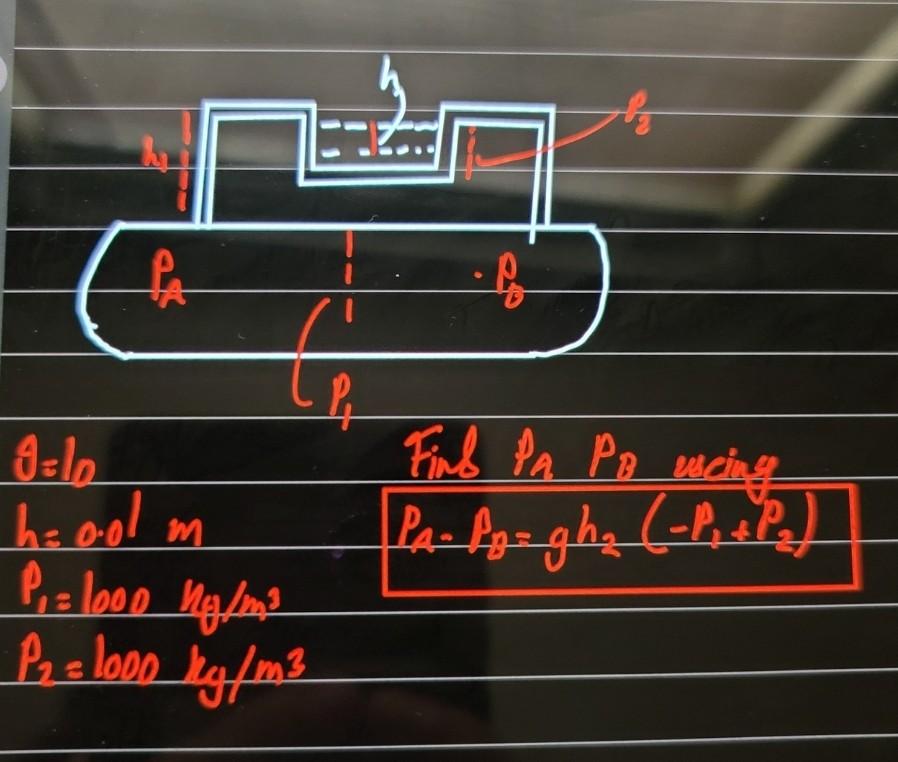 h
h₁
P₂
P_A
P_B
P₁
g=10
h=0.01 m
P₁=1000 kg/m³
P₂=1000 kg/m³
Find P_A P_B uscing
P_A-P_B=gh₂(-P₁+P₂)